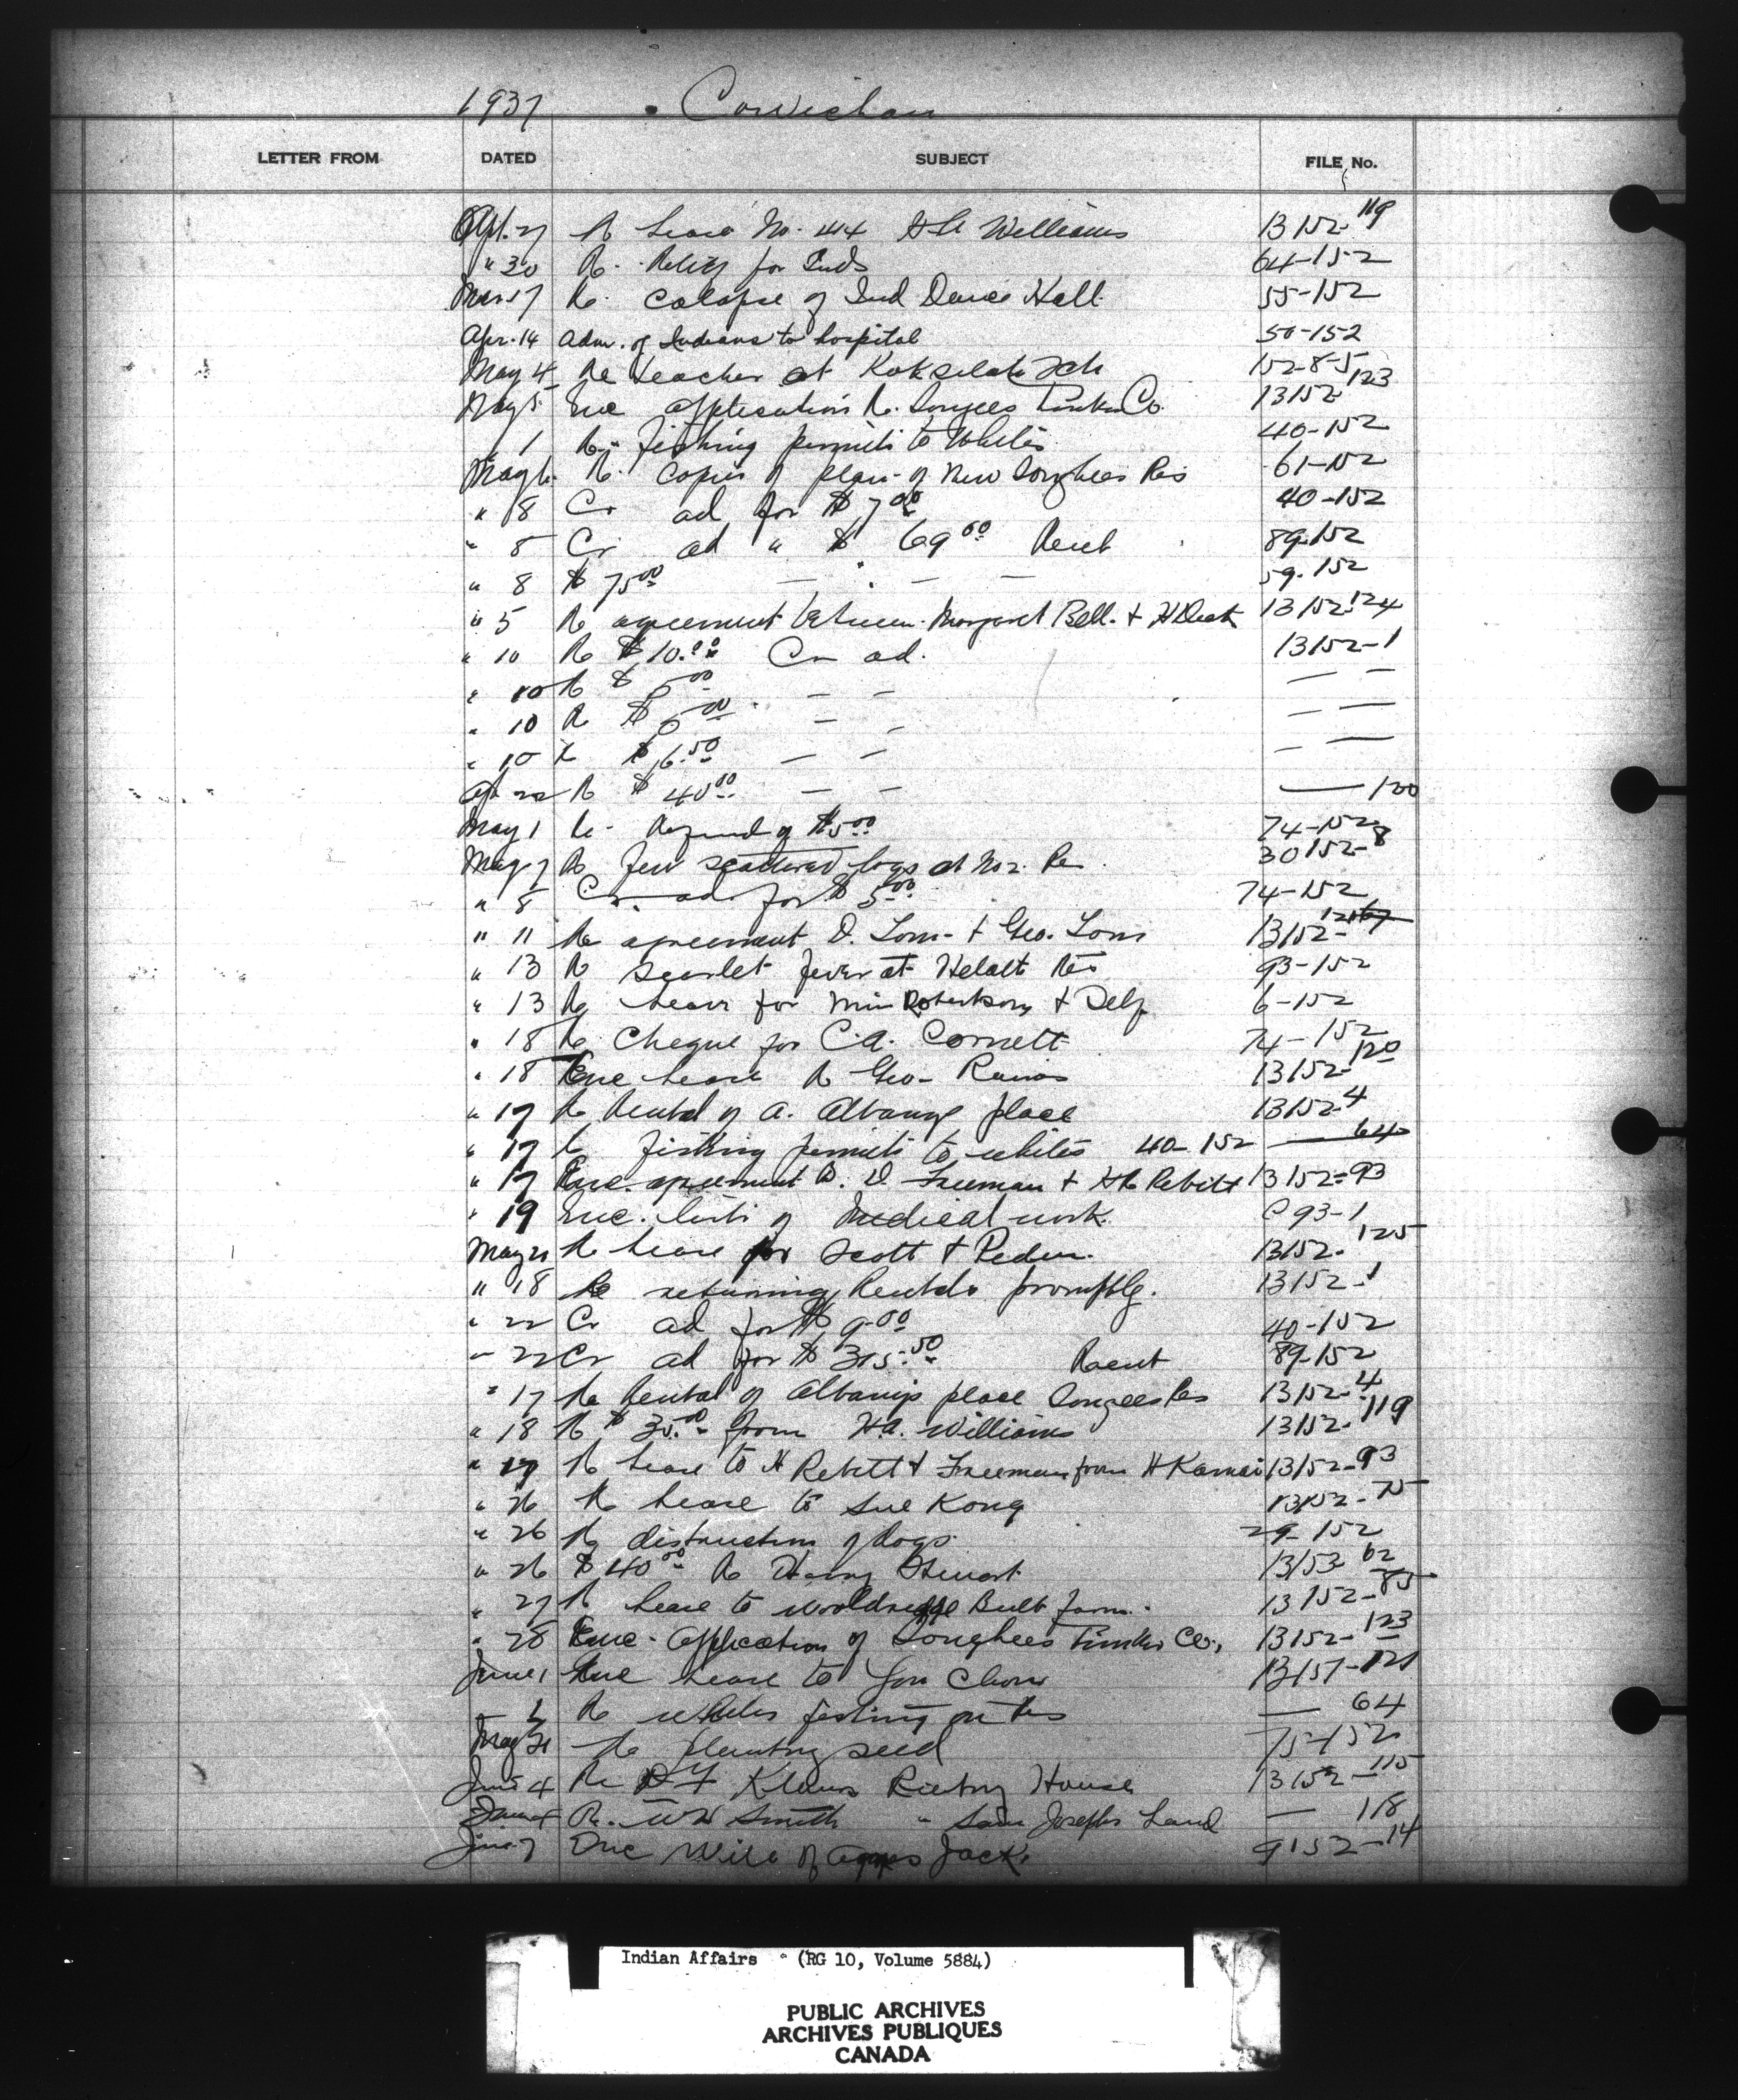 1937 Cowichan
LETTER FROM DATED SUBJECT FILE No.
Apl. 27 Re Lease No. 444 H A Williams 13152-119
" 30 Re. Relief for Inds 64-152
Mar 17 Re. Colapse of Ind Dance Hall. 55-152
Apr. 14 Adm. of Indians to hospital 50-152
May 4 Re teacher at Koksilah Sch 152-8-5
May 5 Enc application Re. Songees Timber Co. 13152-123
" 1 Re- fishing permits to Whites 40-152
May 6. Re. Copies of plan of New Songhees Res 61-152
" 8 Cr ad for $ 7.00 40-152
" 8 Cr ad " $ 69.00 Rent 89-152
" 8 $ 75.00 — " — — 59-152
" 5 Re agreement between Margaret Bell. & H 13152-124
" 10 Re $ 10.00 Cr ad. 13152-1
" 10 Re $ 5.00 — — — —
" 10 Re $ 5.00 — — — —
" 10 Re $ 6.50 — — — —
Ap 22 Re $ 40.00 — — — 120
May 1 Re- Refund of $5.00 74-152
May 7 Re few scattered logs at No 2. Re 30152-8
" 8 Cr. ad. for $ 5.00 74-152
" 11 Re agreement D. Tom- & Geo. Tom 13152-121
" 13 Re scarlet fever at Helalt Res 93-152
" 13 Re Lease for Min Robertson & Delf 6-152
" 18 Re. Cheque for C.A. Cornett 74-152
" 18 Enc Lease Re Geo- 13152-120
" 17 Re Rental of A. Albany place 13152-4
" 17 Re fishing permits to whites 40-152 — 64
" 17 Enc. agreement B. D Freeman & H Rebitt 13152-93
" 19 Enc. lists of Medical work. C 93-1
May 21 Re Lease for Scott & Peden. 13152-125
" 18 Re returning Rentals promptly. 13152-1
" 22 Cr ad for $ 9.00 40-152
" 22 Cr ad for $ 315.50 Rent 89-152
" 17 Re Rental of Albanys place Songees Res 13152-4
" 18 Re $ 35.00 from H.A. Williams 13152-119
" 17 Re Lease to H Rebitt & Freeman from H 13152-93
" 26 Re Lease to Sue Kong 13152-75
" 26 Re distruction of dogs. 29-152
" 26 $ 40.00 Re Harry Stewart 13153-62
" 27 Re Lease to Wooldridge Bulb farm. 13152-85
" 28 Enc- Application of Songhees Timber Co., 13152-123
June 1 Enc Lease to You Chow 13157-121
" 2 Re whites fishing on Res — 64
May 31 Re planting seed 75-152
June 4 Re Renting House 13152-115
June 4 Re. W W Smith " Sam Josephs Land — 118
June 7 Enc Will of Agnes Jack. 9152-14
Indian Affairs (RG 10, Volume 5884)
PUBLIC ARCHIVES
ARCHIVES PUBLIQUES
CANADA